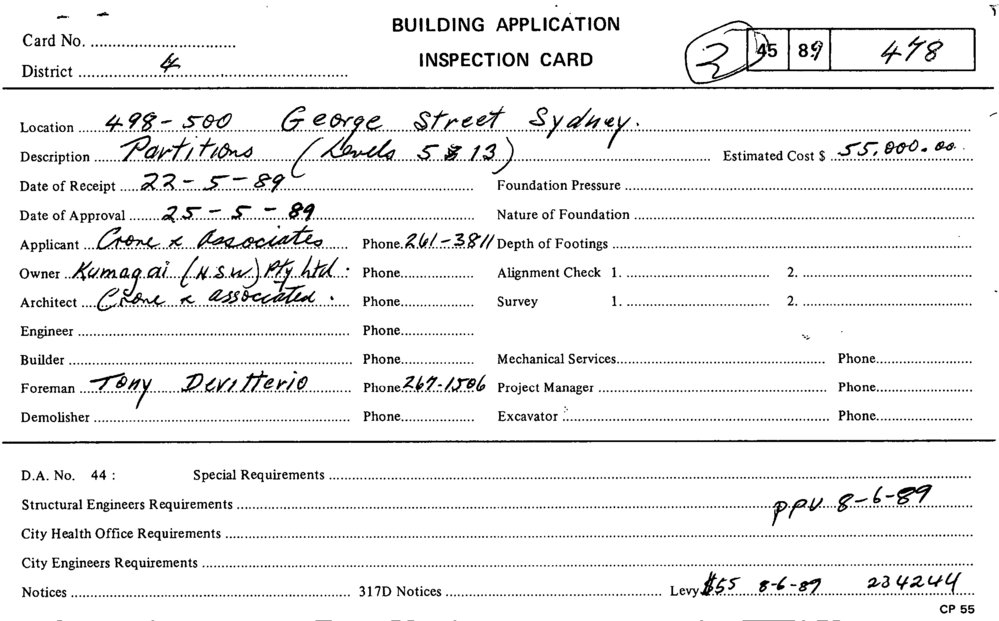 BUILDING APPLICATION
INSPECTION CARD
Card No.
2 45 89 478
District 4
Location 498-500 George Street Sydney.
Description Partitions (Levels 5 & 13) Estimated Cost $ 55,000.00
Date of Receipt 22-5-89 Foundation Pressure
Date of Approval 25-5-89 Nature of Foundation
Applicant Crone & Associates Phone 261-3811 Depth of Footings
Owner Kumagai (N.S.W) Pty Ltd. Phone Alignment Check 1. 2.
Architect Crone & associated. Phone Survey 1. 2.
Engineer Phone
Builder Phone Mechanical Services Phone
Foreman Tony Devitterio Phone 267-1506 Project Manager Phone
Demolisher Phone Excavator Phone
D.A. No. 44 : Special Requirements
Structural Engineers Requirements PPU 8-6-89
City Health Office Requirements
City Engineers Requirements
Notices 317D Notices Levy $55 8-6-89 234244
CP 55